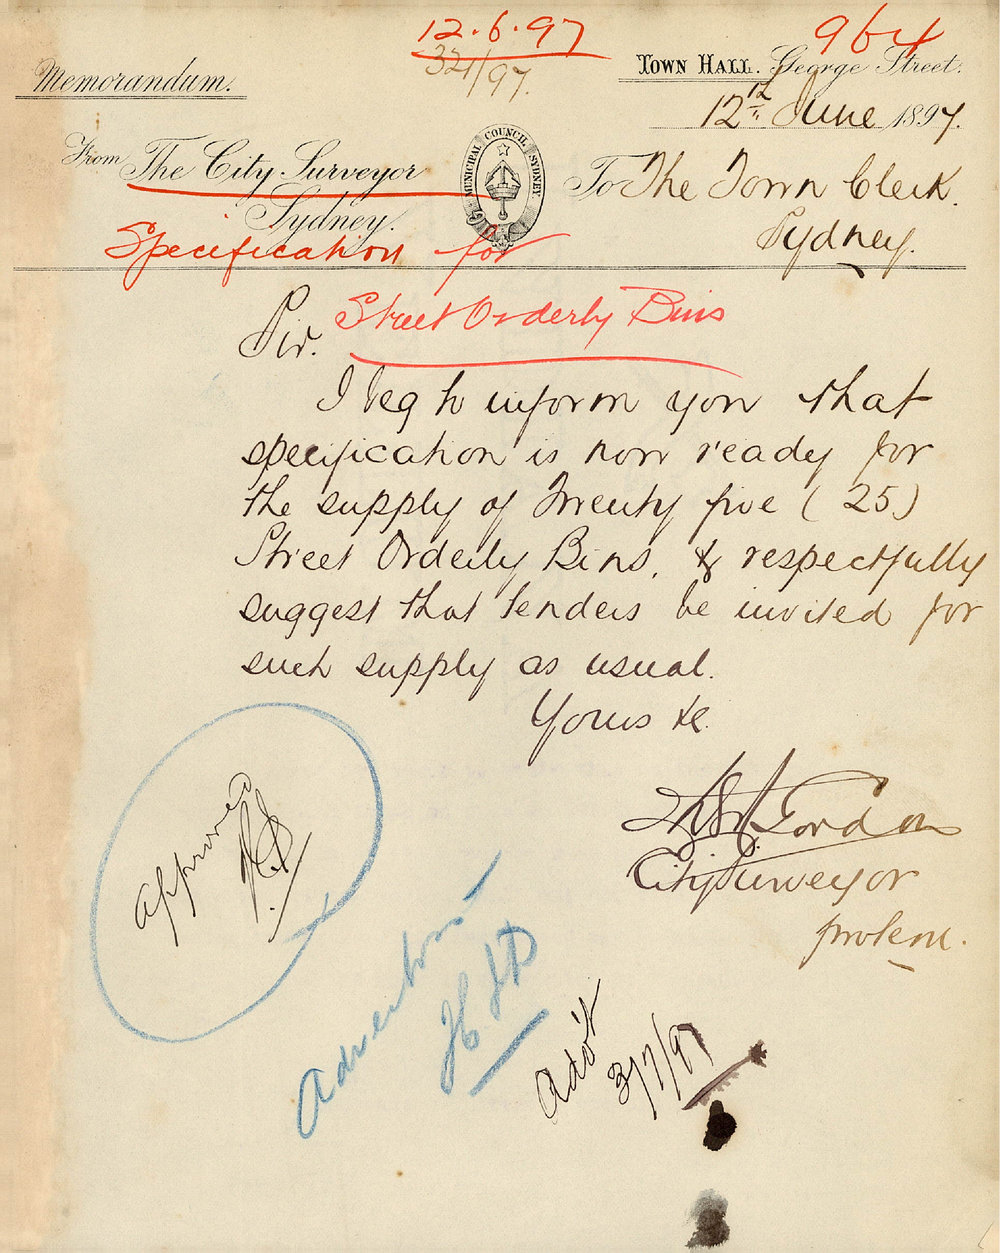 12.6.97
964
321/97.
Memorandum.
TOWN HALL. George Street.
12th June 1897.
From The City Surveyor
Sydney.
MUNICIPAL COUNCIL SYDNEY
To The Town Clerk.
Sydney.
Specification for
Street Orderly Bins
Sir.
I beg to inform you that
specification is now ready for
the supply of Twenty five (25)
Street Orderly Bins, & respectfully
suggest that tenders be invited for
such supply as usual.
Yours &c.
Gordon
City Surveyor
protem.
Approved
Advertise
Adv't
3/7/97